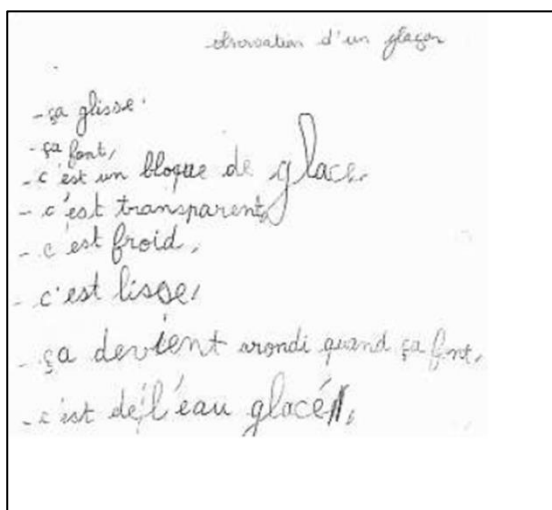 observation d'un glaçon
- ça glisse.
- ça font,
- c'est un bloque de glace.
- c'est transparent,
- c'est froid,
- c'est lisse,
- ça devient arondi quand ça font,
- c'est de l'eau glacé,